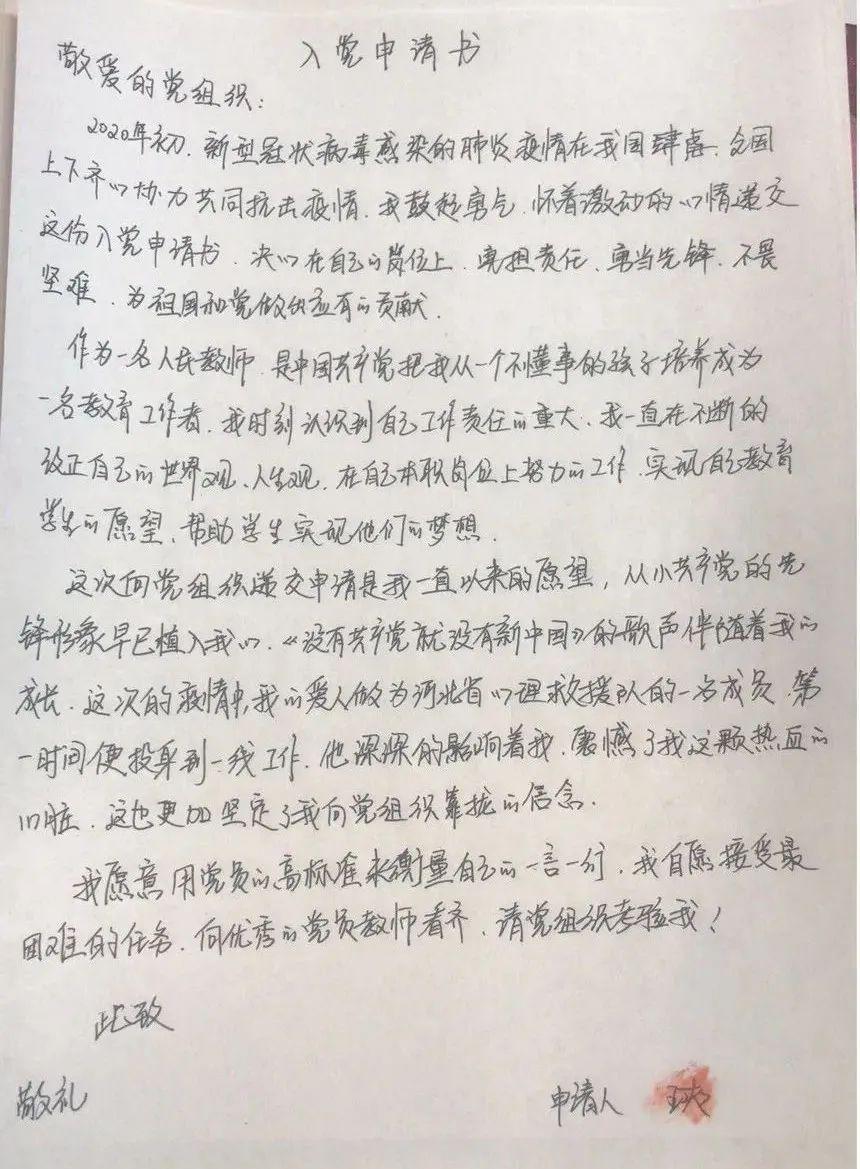 入党申请书
敬爱的党组织：
2020年初，新型冠状病毒感染的肺炎疫情在我国肆虐，全国
上下齐心协力共同抗击疫情，我鼓起勇气，怀着激动的心情递交
这份入党申请书，决心在自己的岗位上，勇担责任，勇当先锋，不畏
坚难，为祖国和党做出应有的贡献。
作为一名人民教师，是中国共产党把我从一个不懂事的孩子培养成为
一名教育工作者，我时刻认识到自己工作责任的重大、我一直在不断的
改正自己的世界观、人生观，在自己本职岗位上努力的工作，实现自己教育
学生的愿望、帮助学生实现他们的梦想。
这次向党组织递交申请是我一直以来的愿望，从小共产党的先
锋形象早已植入我心，《没有共产党就没有新中国》的歌声伴随着我的
成长，这次的疫情中，我的爱人做为河北省心理救援队的一名成员，第
一时间便投身到一线工作，他深深的影响着我，震憾了我这颗热血的
心脏，这也更加坚定了我向党组织靠拢的信念。
我愿意用党员的高标准来衡量自己的一言一行，我自愿接受最
困难的任务，向优秀的党员教师看齐，请党组织考验我！
此致
敬礼
申请人